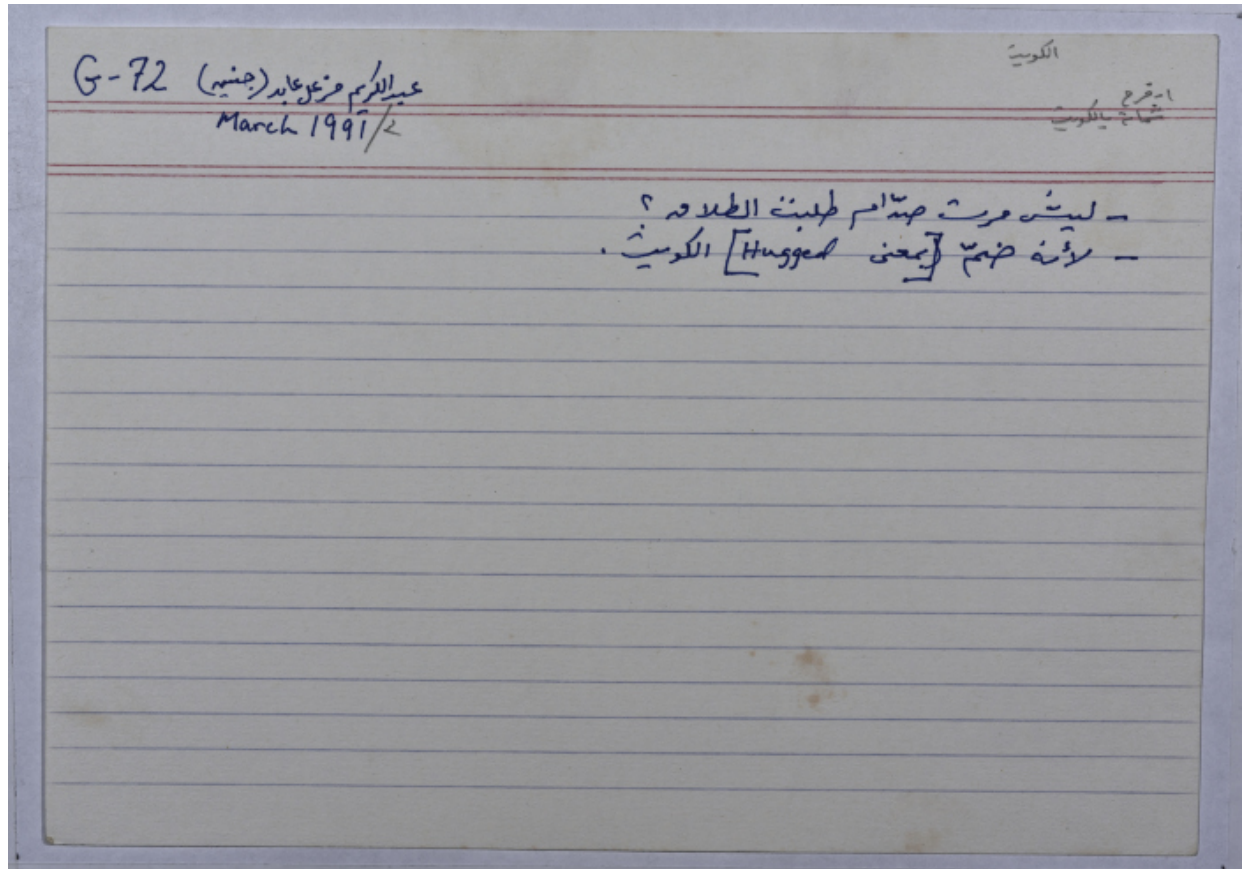 الكويت
G-72 عبدالكريم مزعل عابد (جنين)
March 1991/2
١- فرح
شماتة بالكويت
- ليش مرت صدّام طلبت الطلاق؟
- لأنه ضمّ [بمعنى Hugged] الكويت.